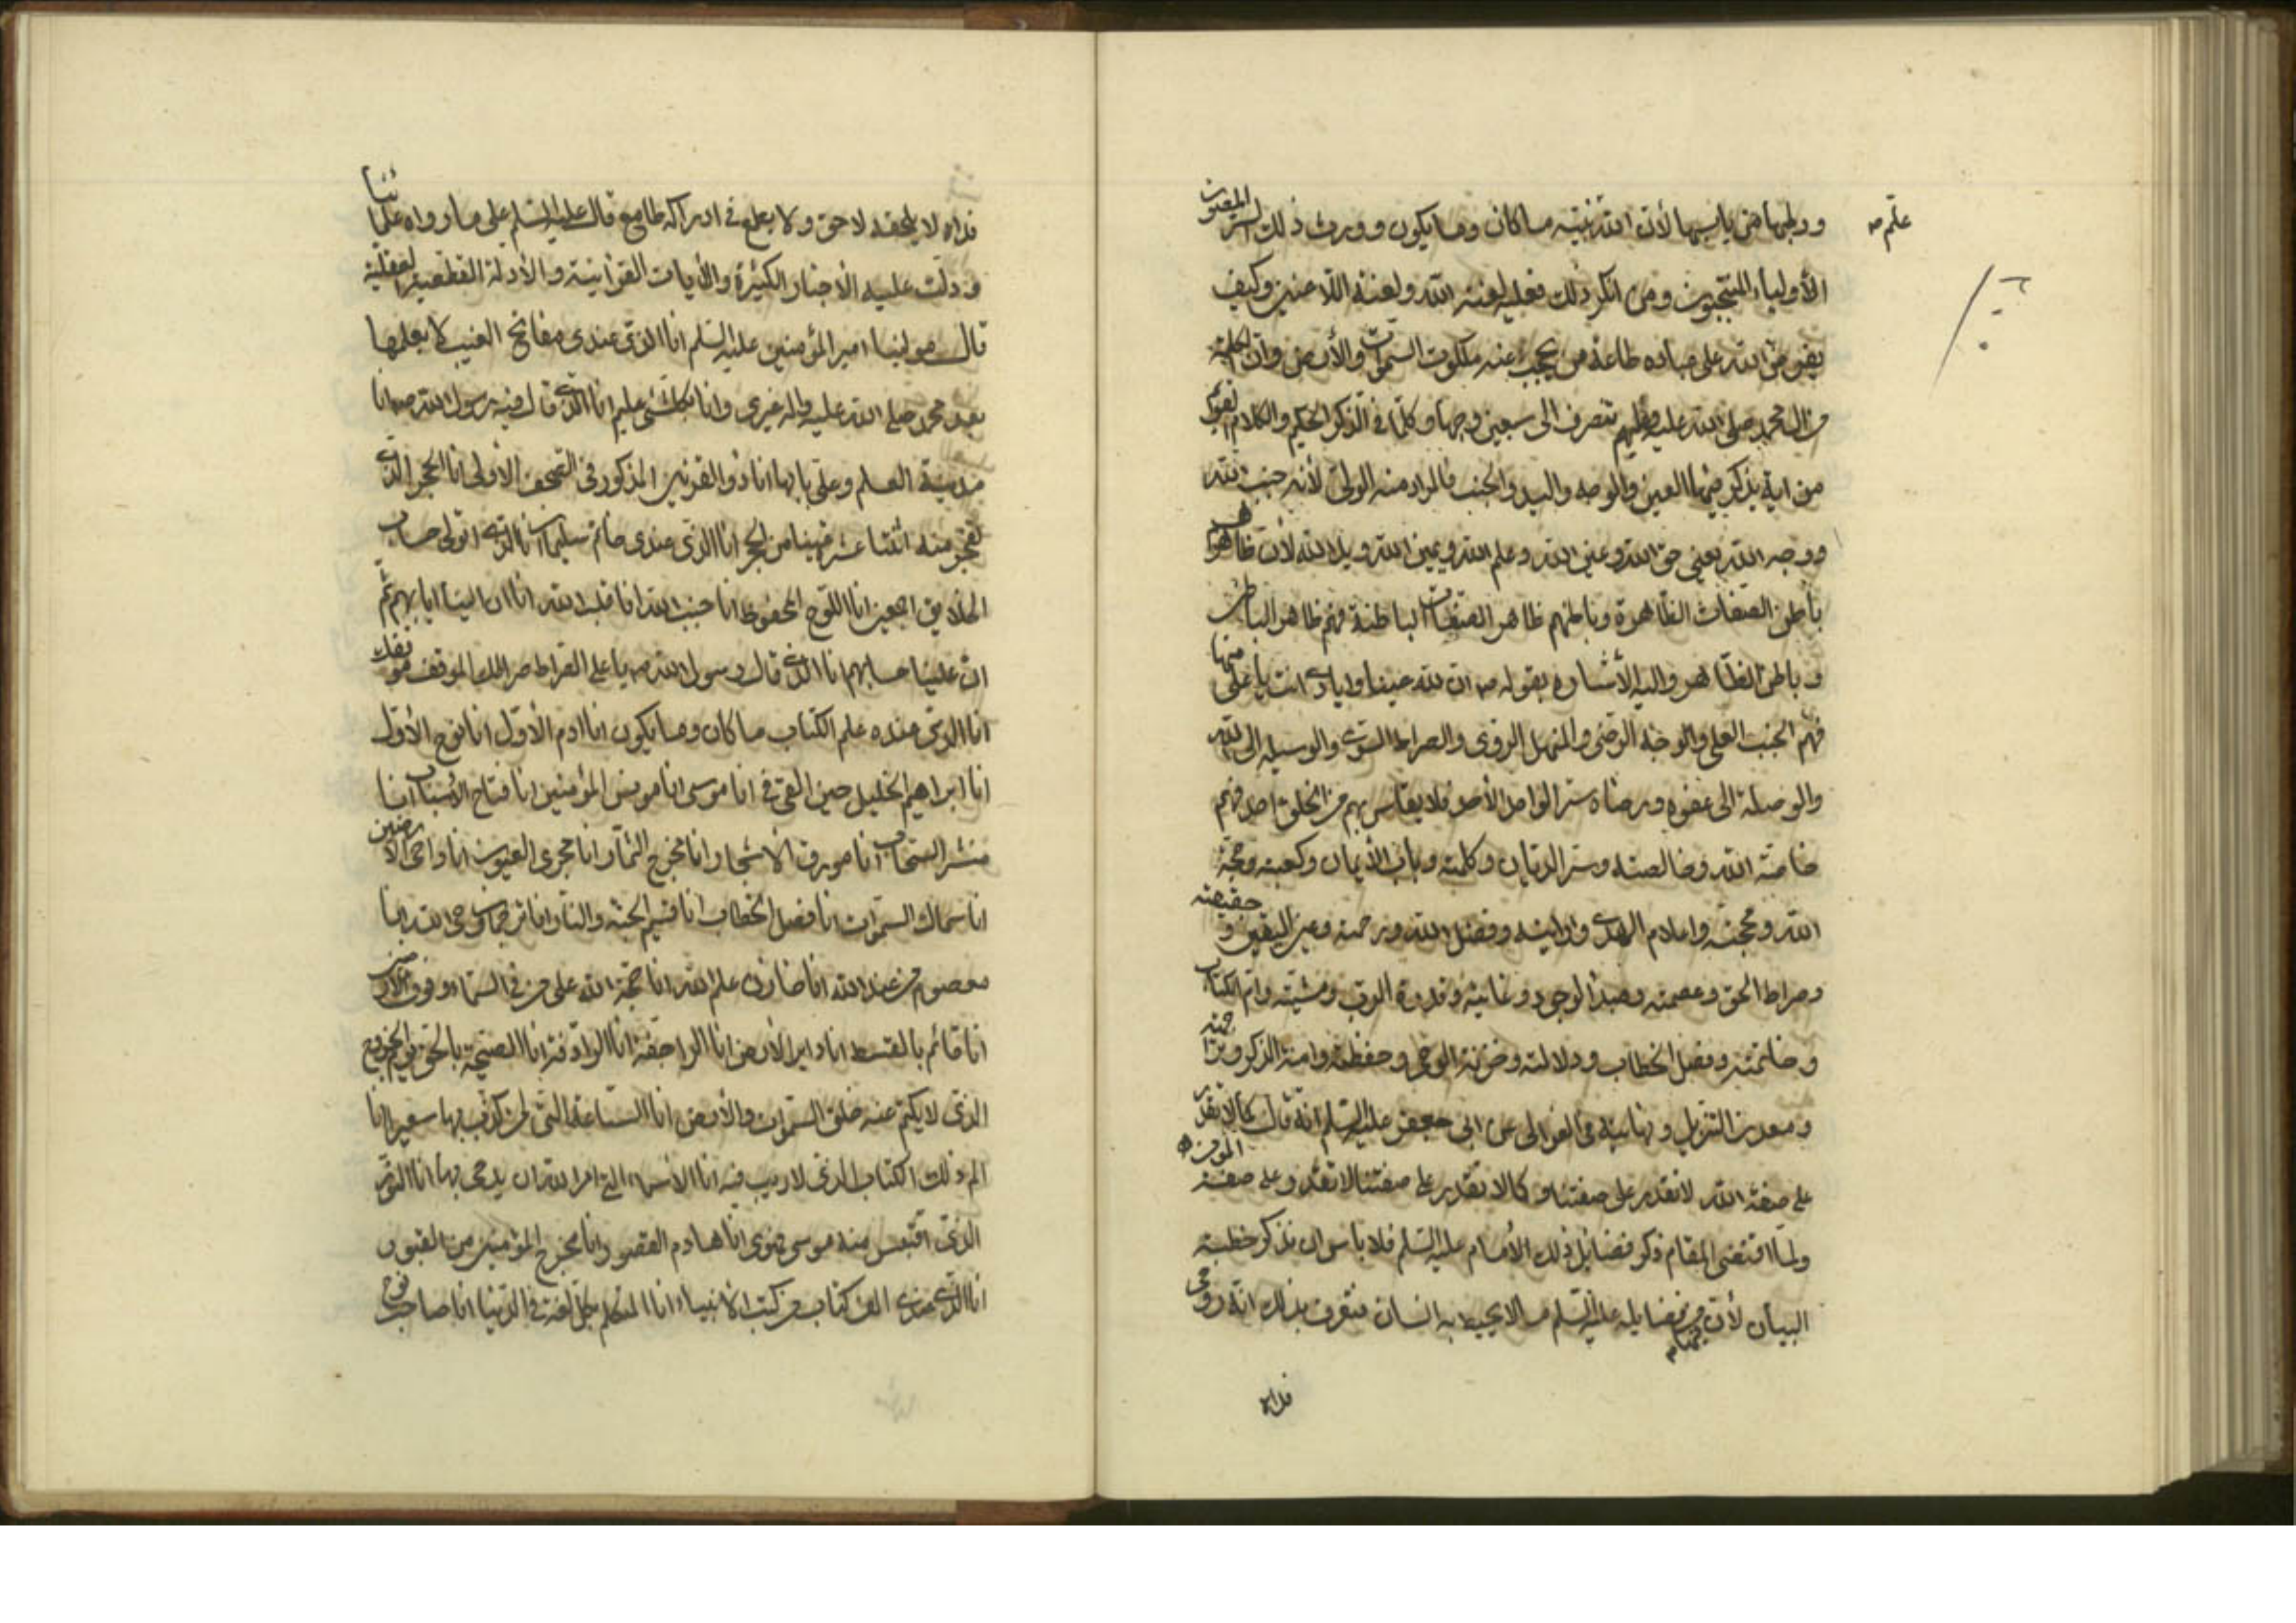 علم ص
وولیها من یاسیها لأن الله نبیه ما کان وما یکون وورث ذلك السر المصون
الأولیاء المنتجبون ومن انکر ذلك فعلیه لعنة الله ولعنة اللاعنین وکیف
یفرض الله علی عباده طاعة من یحجب عنه ملکوت السموات والأرض وان الکلمة
من ال محمد صلی الله علیه وعلیهم تتصرف الی سبعین وجها وکلما فی الذکر الحکیم والکلام القدیم
من ایة یذکر فیها العین والوجه والید والجنب فالمراد منه الولی لأنه جنب الله
ووجه الله یعنی حق الله وعین الله وعلم الله ویمین الله وید الله لأن ظاهرهم
باطن الصفات الظاهرة وباطنهم ظاهر الصفات الباطنة فهم ظاهر الباطن
و باطن الظاهر والیه الأشاره بقوله ص ان لله عینا وایادی انت یا علی منها
فهم الجنب العلی والوجه الرضی والمنهل الروی والصراط السوی والوسیله الی الله
والوصلة الی عفوه ورضاه سر الواحد الأحد فلا یقاس بهم من الخلق احد فهم
خاصة الله وخالصته وسر الدیان وکلمته وباب الأیمان وکعبته وحجة
الله ومحجته واعلام الهدی ورایته وفضل الله ورحمته وعین الیقین و حقیقته
وصراط الحق وعصمته ومبدأ الوجود وغایته وقدرة الرب ومشیته وام الکتاب
وخاتمته وفصل الخطاب ودلالته وخزنة الوحی وحفظته وامنة الذکر وتراجمته
ومعدن التنزیل ونهایته فی العوالی عن ابی جعفر علیه السلم انه قال کما لا تقدر
علی صفة الله لا تقدر علی صفتنا وکما لا تقدر علی صفتنا لا تقدر علی صفة المؤمن ه
ولما اقتضی المقام ذکر فضایل ذلك الأمام علیه السلم فلا باس ان نذکر خطبته
البیان لأن فیها من فضایله علیه السلم ما لا یحیط به انسان فتعرف بذلك انه روحی
فداه
فداه لا یلحقه لاحق ولا یطمع فی ادراکه طامع قال علیه السلم علی ما رواه علمائنا
و دلت علیه الأخبار الکثیرة والأیات القرأنیة والأدلة القطعیة العقلیة
قال مولینا امیر المؤمنین علیه السلم انا الذی عندی مفاتح الغیب لا یعلمها
بعد محمد صلی الله علیه واله غیری وانا بکل شئ علیم انا الذی قال فیه رسول الله ص انا
مدینة العلم وعلی بابها انا ذو القرنین المذکور فی الصحف الاولی انا الحجر الذی
تفجر منه اثنتا عشرة عینا من الحجر انا الذی عندی خاتم سلیمان انا الذی اتولی حساب
الخلایق اجمعین انا اللوح المحفوظ انا جنب الله انا قلب الله انا ان الینا ایابهم ثم
ان علینا حسابهم انا الذی قال رسول الله ص یا علی الصراط صراطك والموقف موقفك
انا الذی عنده علم الکتاب ما کان وما یکون انا ادم الأول انا نوح الأول
انا ابراهیم الخلیل حین القی فی انا موسی انا مونس المؤمنین انا فتاح الأسباب انا
منشر السحاب انا مورق الاشجار انا مخرج الثمار انا مجری العیون انا داحی الأرضین
انا سماك السموات انا فصل الخطاب انا قسیم الجنة والنار انا ترجمان وحی الله انا
معصوم من عند الله انا خازن علم الله انا حجة الله علی من فی السماء وفوق الأرضین
انا قائم بالقسط انا دابر الأرض انا الراجفة انا الرادفة انا الصیحة بالحق یوم الخروج
الذی لا یکتم عنه خلق السموات والأرض انا الساعة التی لمن کذب بها سعیرا انا
الم ذلك الکتاب الذی لا ریب فیه انا الأسماء التی امر الله ان یدعی بها انا النور
الذی اقتبس منه موسی فهدی انا هادم القصور انا مخرج المؤمنین من القبور
انا الذی عندی الف کتاب من کتب الانبیاء انا المتکلم بکل لغة فی الدنیا انا صاحب نوح